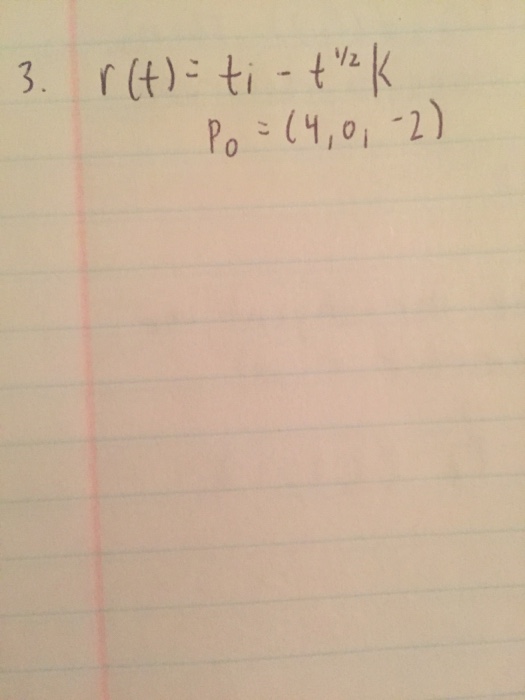 3. r(t) = ti - t^1/2 k
P₀ = (4, 0, -2)